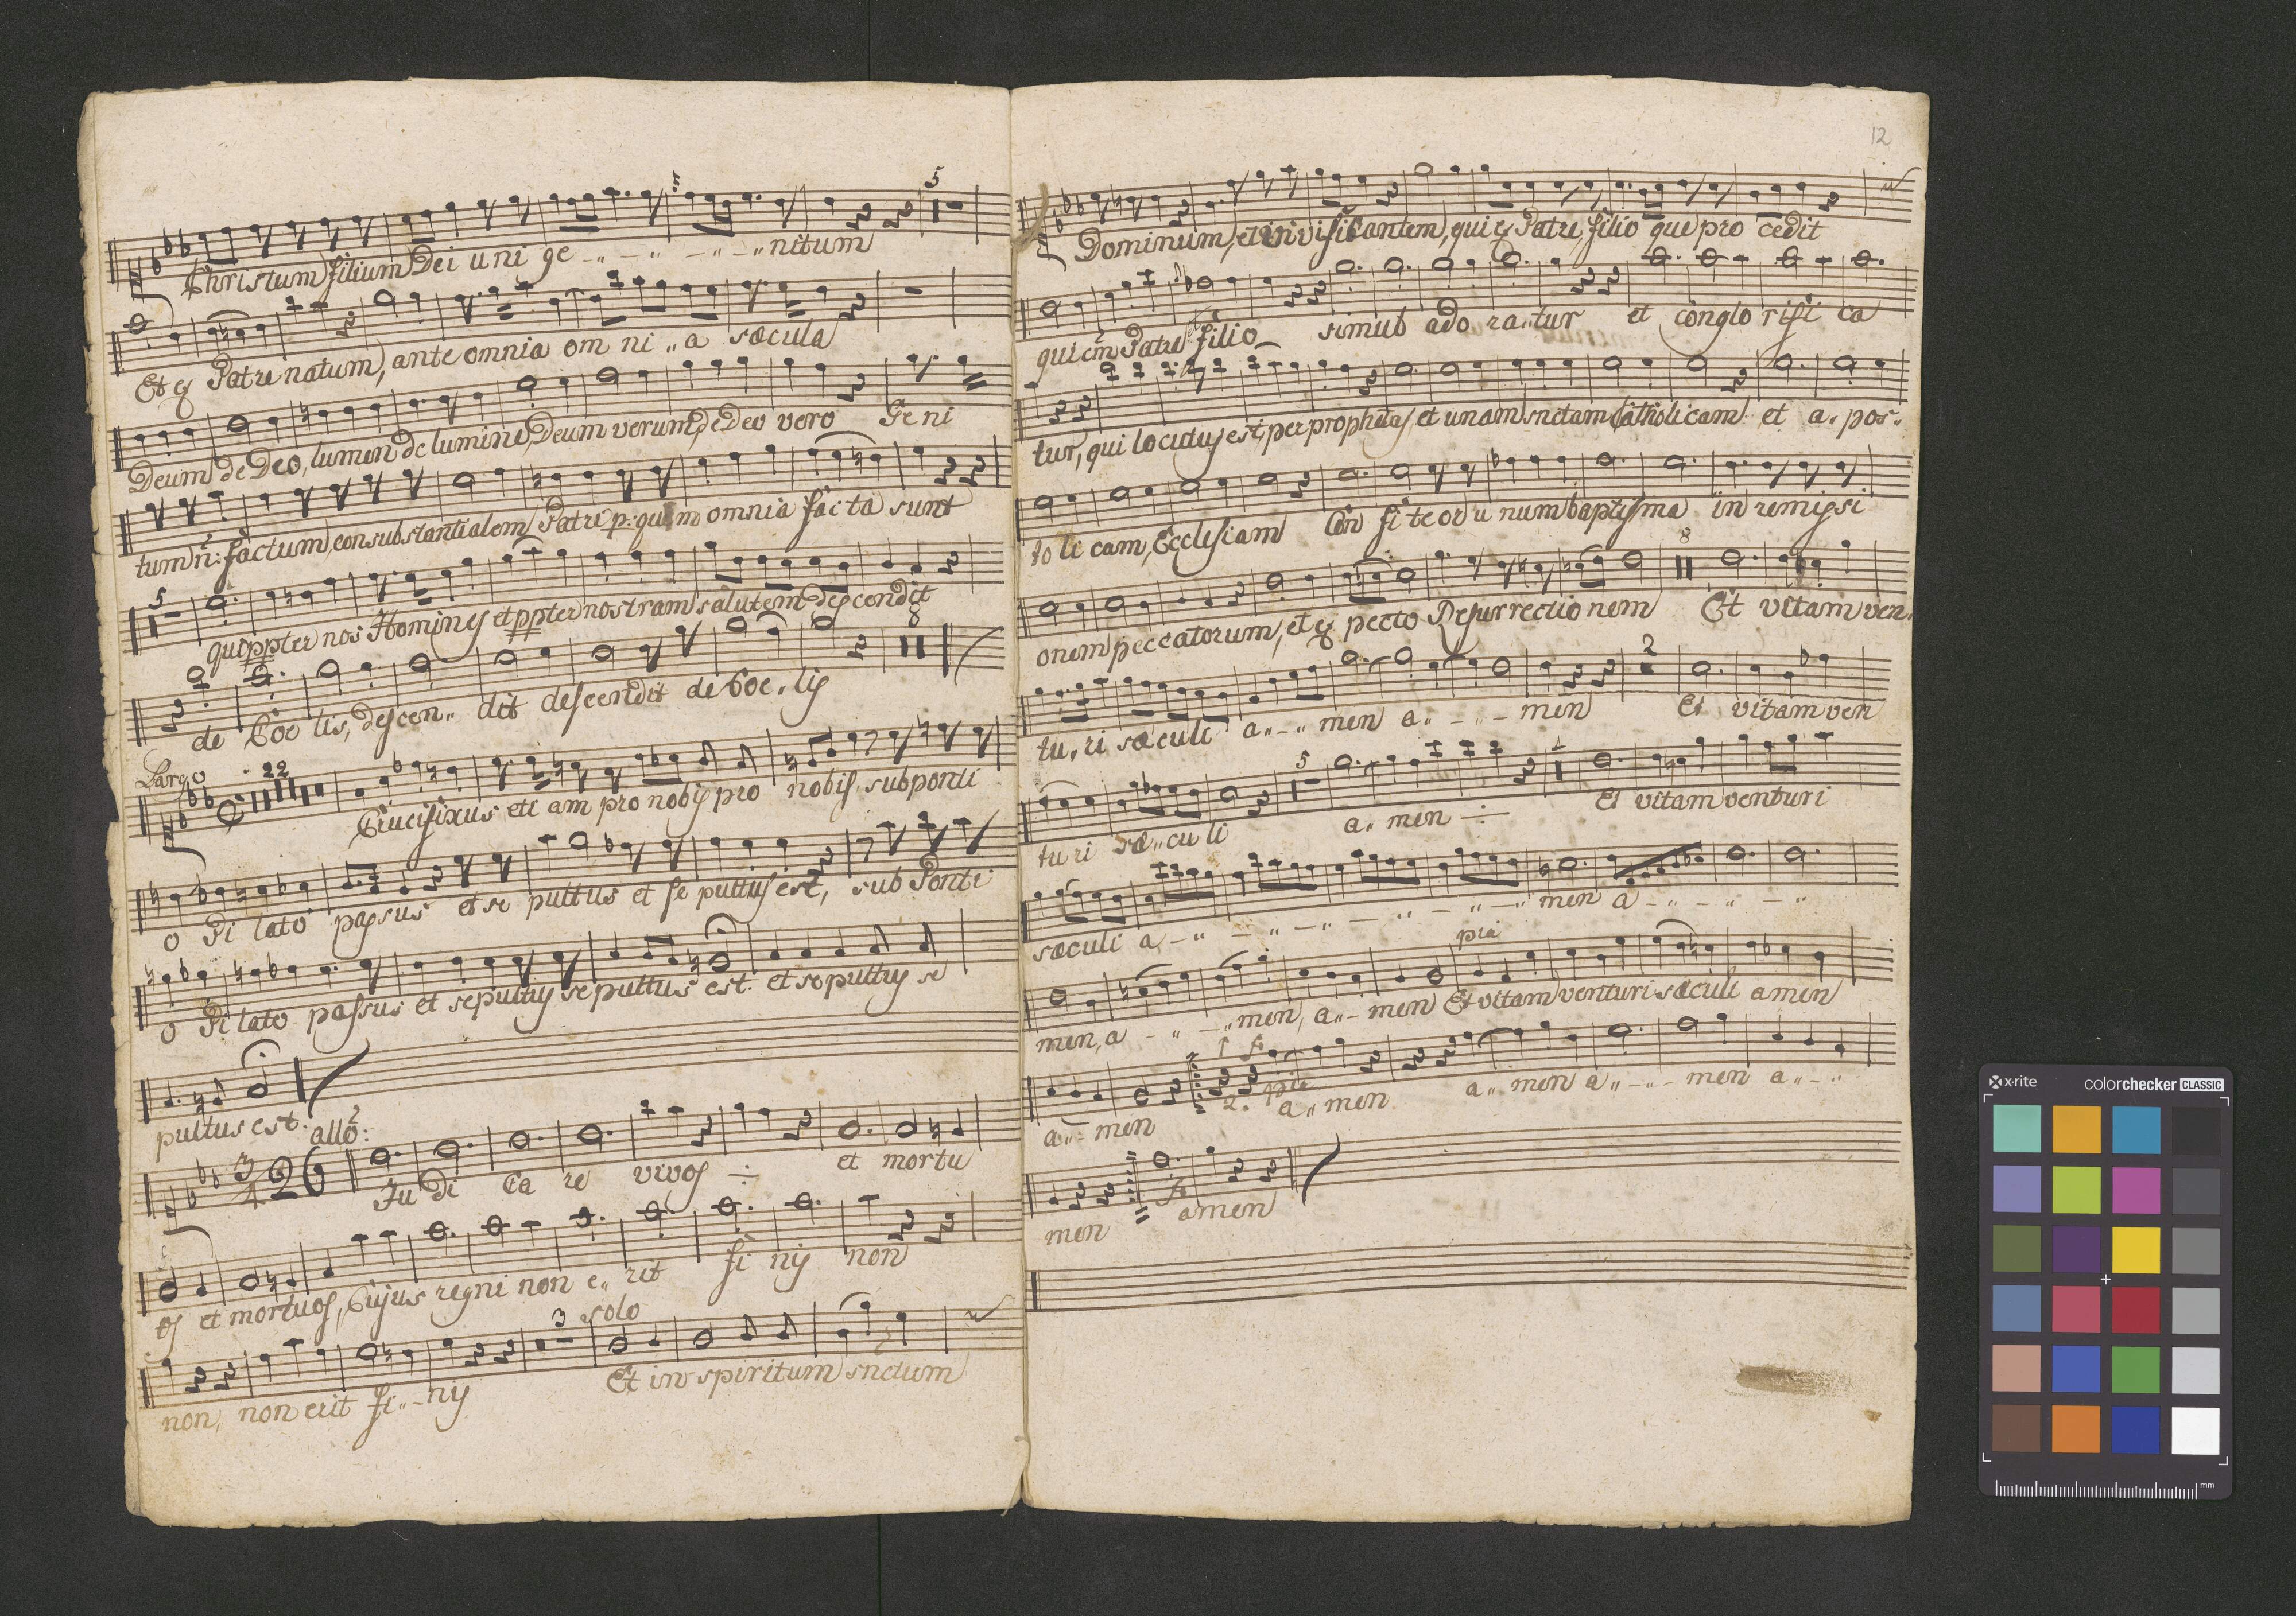 5
Christum filium Dei uni ge - „ - „ - „ - „ nitum
Et ex Patre natum, ante omnia om ni „ a sæcula
Deum de Deo, lumen de lumine, Deum verum, de Deo vero Ge ni
tum ñ: factum, consubstantialem Patri p: quem omnia facta sunt
5
qui ppter nos Homines et ppter nostram salutem descendit
8
de Coe lis, descen „ dit descendit de Coe „ lis
Largo
22
Crucifixus eti am pro nobis pro nobis. sub ponti
o Pi lato passus et se pultus et se pultus est, sub Ponti
o Pi lato passus et sepultus se pultus est. et sepultus se
pultus est.
allo:
3/4 26
Ju di ca re vivos -:- et mortu
os et mortuos, Cujus regni non e „ rit fi nis non
3 solo
non, non erit fi „ - nis Et in spiritum snctum
12
Dominum, et in vificantem, qui ex Patre, filio que pro cedit
qui cm Patre filio simul ado ra „ tur et conglo rifi ca
tur, qui locutus est, per prophetas et unam snctam Catholicam et a „ pos „
to li cam, Ecclesiam Con fi te or u num baptisma in remissi
8
onem peccatorum, et ex pecto Resurrectio nem Et vitam ven „
2
tu „ ri sæculi a „ - „ men a „ - „ - men Et vitam ven
5 1
tu ri sæ „ cu li a „ men -:- Et vitam venturi
sæculi a - „ - „ - „ - „ - „ - „ men a - „ - „ - „
pia
men, a - „ - „ men, a „ - men Et vitam venturi sæculi amen
1 f:
2. pia
a „ - men a „ men a „ men a „ - „ - men a „ - „
f:
men amen
x-rite
colorchecker CLASSIC
mm